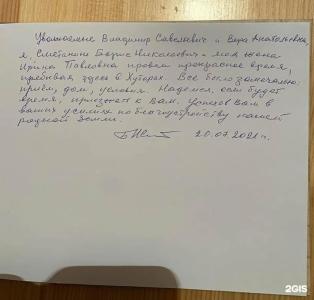 Уважаемые Владимир Савельевич и Вера Анатольевна,
я, Сметанин Борис Николаевич и моя жена
Ирина Павловна провели прекрасное время,
пребывая здесь в Хуторах. Все было замечательно:
приём, дом, условия. Надеемся, если будет
время, приезжать к Вам. Успехов Вам в
ваших усилиях по благоустройству нашей
родной земли.
20.07.2021 г.
2GIS